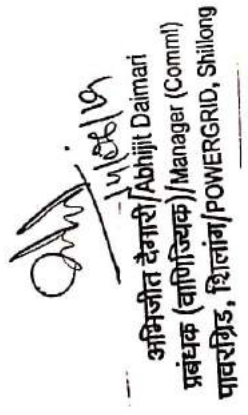 अभिजीत दैमारी/Abhijit Daimari
प्रबंधक (वाणिज्यिक)/Manager (Comml)
पावरग्रिड, शिलांग/POWERGRID, Shillong